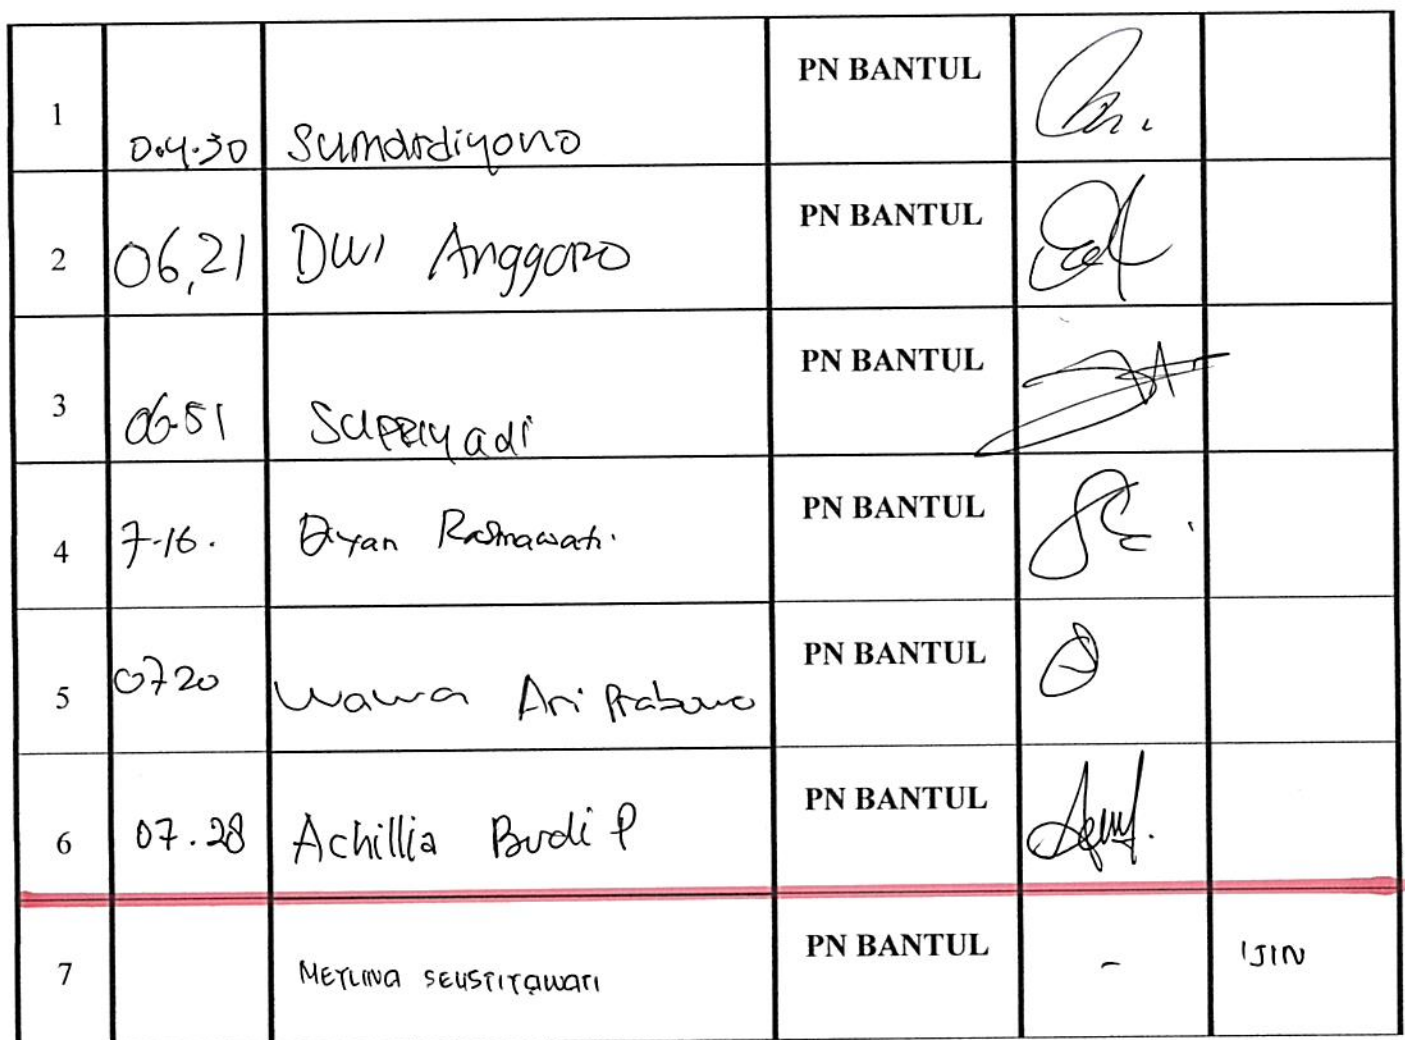 1 0.4.30 Sumardiyono PN BANTUL
2 06,21 Dwi Anggoro PN BANTUL
3 06.51 Supriyadi PN BANTUL
4 7.16. Dyan Ratnawati. PN BANTUL
5 0720 Wawa Ari Prabowo PN BANTUL
6 07.28 Achillia Budi P PN BANTUL
7 PN BANTUL - IJIN